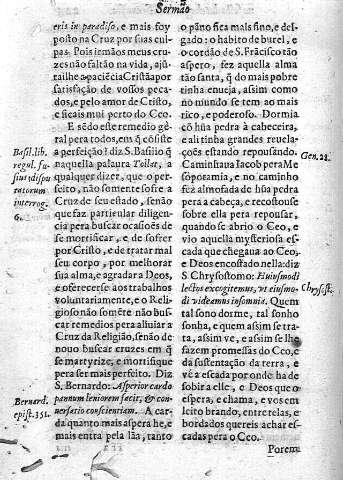 Sermão
eris in paradiso, e mais foy
posto na Cruz por suas cul
pas. Pois irmãos meus cruz
zes não faltão na vida, aju
tailhe a paciẽcia Cristãa por
satisfação de vossos peca
dos, e pelo amor de Cristo,
e ficais mui perto do Ceo.
E sẽdo este remedio gẽ
ral pera todos, em q̃ cõsiste
a perfeição? diz S. Basilio q̃
aquella palaura Tollat, a
qualquer dizer, que o per
feito, não somente sofre a
Cruz de seu estado, senão
que faz particular diligen
cia pera buscar ocasiões de
se mortificar, e de sofrer
por Cristo, e de tratar mal
seu corpo, por melhorar
sua alma, e agradar a Deos,
e oferecerse aos trabalhos
voluntariamente, e o Reli
gioso não somẽte não bus
car remedios pera alliuiar a
Cruz da Religião, senão de
nouo buscar cruzes em q̃
se martyrize, e mortifique
pera ser mais perfeito. Diz
S. Bernardo: Asperior cardo
pannum leniorem facit, & con
uersatio conscientiam. A car
da quanto mais aspera he, e
mais entra pela lãa, tanto
Basil. lib.
regul. fu
sius disputatorum
interrog.
6.
Bernard.
epist. 351.
o pãno fica mais fino, e del
gado: o habito de burel, e
o cordão de S. Frãcisco tão
aspero, fez aquella alma
tão santa, q̃ do mais pobre
tinha enueja, assim como
no mundo se tem ao mais
rico, e poderoso. Dormia
cõ hũa pedra à cabeceira,
e ali tinha grandes reuela-
ções estando repousando.
Caminhaua Iacob pera Me
sopotamia, e no caminho
fez almofada de hũa pedra
pera a cabeça, e recostouse
sobre ella pera repousar,
quando se abrio o Ceo, e
vio aquella mysteriosa es
cada que chegaua ao Ceo,
e Deos encostado nella: diz
S Chrysostomo: Huiusmodi
lectos excogitemus, vt eiusmo-
di videamus insomnia. Quem
tal sono dorme, tal sonho
sonha, e quem assim se tra
ta, assim ve, e assim se lhe
fazem promessas do Ceo, e
da sustentação da terra, e
vè a escada por onde ha de
sobir a elle, e Deos que o
espera, e chama, e vos em
leito brando, entretelas, e
bordados quereis achar es
cadas pera o Ceo.
Gen. 28.
Chrysost.
Porem